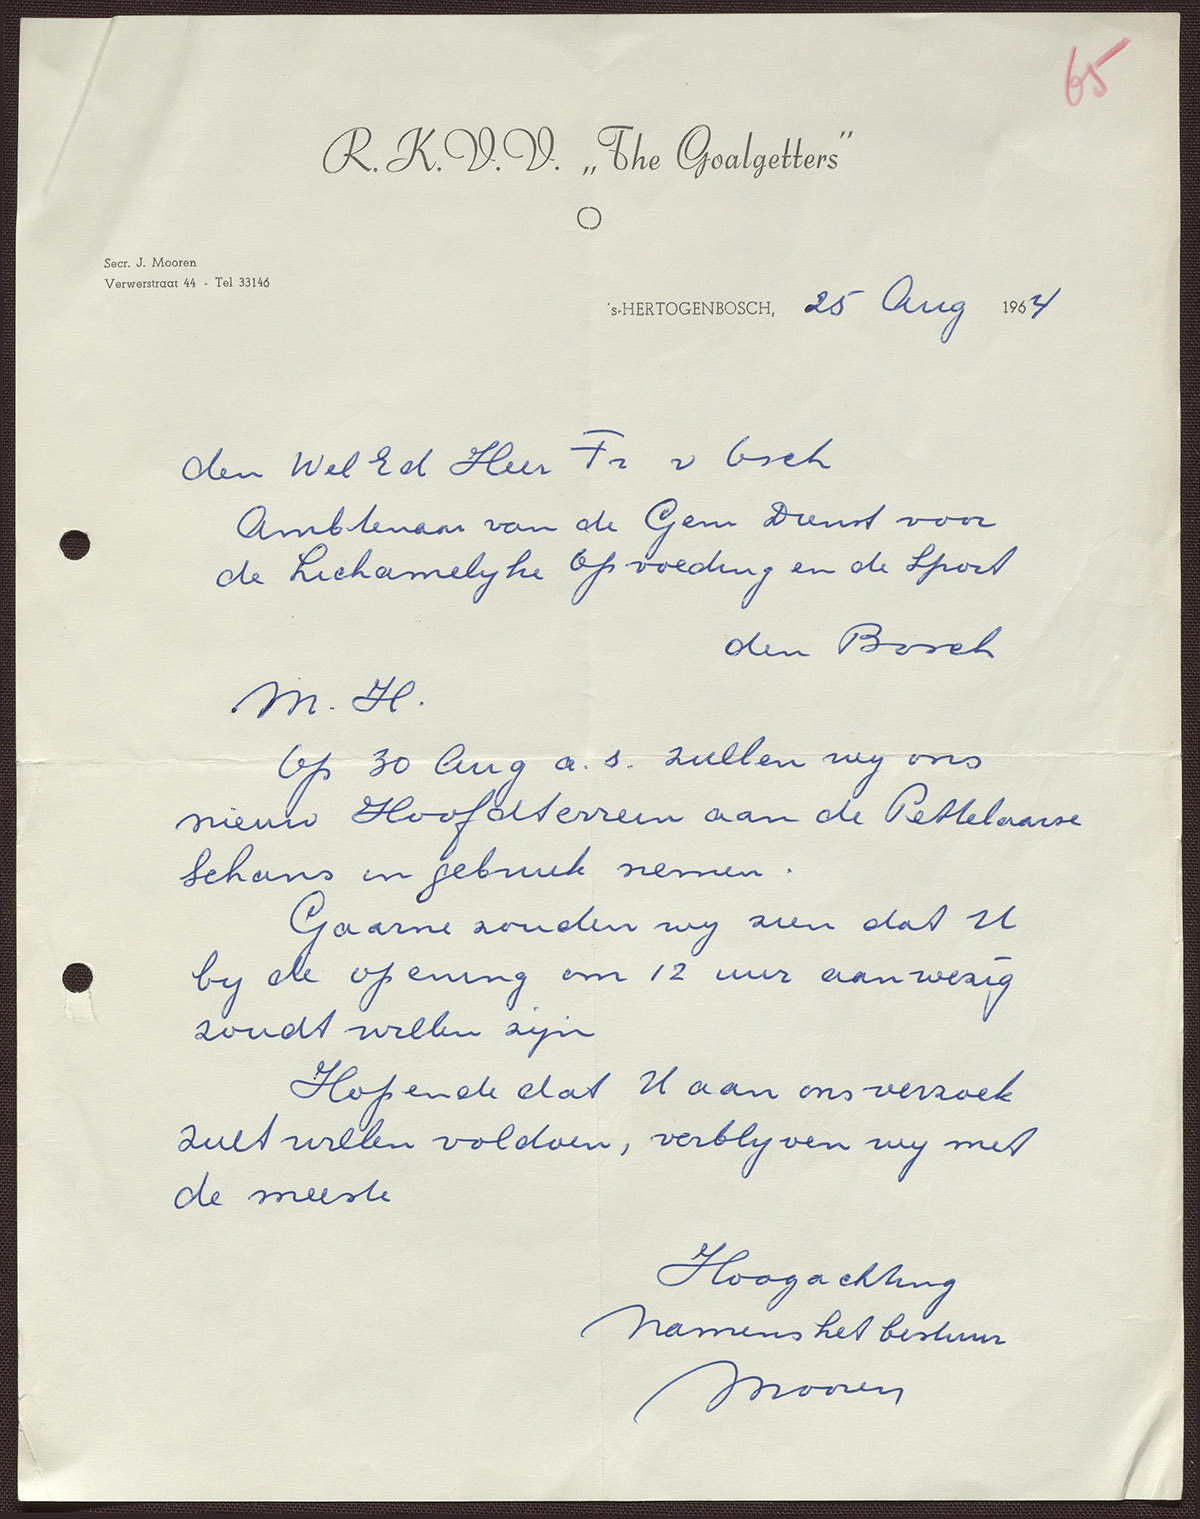 65
R.K.V.V. „The Goalgetters"
Secr. J. Mooren
Verwerstraat 44 - Tel 33146
's-HERTOGENBOSCH, 25 Aug 1964
den Wel Ed Heer Fr v Esch
Ambtenaar van de Gem Dienst voor
de Lichamelyke Opvoeding en de Sport
den Bosch
M. H.
Op 30 Aug a. s. zullen wy ons
nieuw Hoofdterrein aan de Pettelaarse
Schans in gebruik nemen.
Gaarne zouden wy zien dat U
by de opening om 12 uur aanwezig
zoudt willen zijn
Hopende dat U aan ons verzoek
zult willen voldoen, verblyven wy met
de meeste
Hoogachting
Namens het bestuur
Mooren